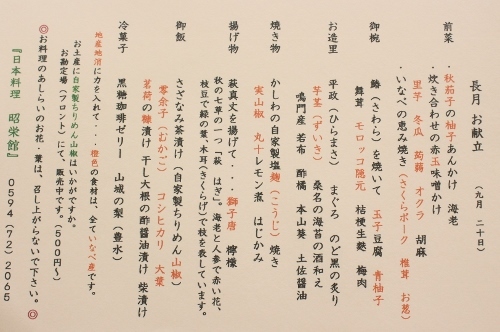 長月 お献立 (九月 二十日)
前菜
・秋茄子の柚子あんかけ 海老
・炊き合わせの赤玉味噌かけ
里芋 冬瓜 蒟蒻 オクラ 胡麻
・いなべの恵み焼き(さくらポーク 椎茸 お葱)
御椀
鰆(さわら)を焼いて 玉子豆腐 青柚子
舞茸 モロッコ隠元 桔梗生麩 梅肉
お造里
平政(ひらまさ) まぐろ のど黒の炙り
芋茎(ずいき) 桑名の海苔の酒和え
鳴門産 若布 酢橘 本山葵 土佐醤油
焼き物
かしわの自家製塩麹(こうじ)焼き
実山椒 丸十レモン煮 はじかみ
揚げ物
萩真丈を揚げて・・・獅子唐 檸檬
秋の七草の一つ「萩 はぎ」。海老と人参で赤い花、
枝豆で緑の葉、木耳(きくらげ)で枝を表しています。
御飯
さざなみ茶漬け(自家製ちりめん山椒)
零余子(むかご) コシヒカリ 大葉
茗荷の糠漬け 干し大根の酢醤油漬け 柴漬け
冷菓子
黒糖珈琲ゼリー 山城の梨(豊水)
地産地消に力を入れて・・・橙色の食材は、全ていなべ産です。
お土産に自家製ちりめん山椒はいかがですか。
お勘定場(フロント)にて、販売中です。(600円〜)
◎お料理のあしらいのお花・葉は、召し上がらないで下さい。◎
『日本料理 昭栄館』 0594(72)2065